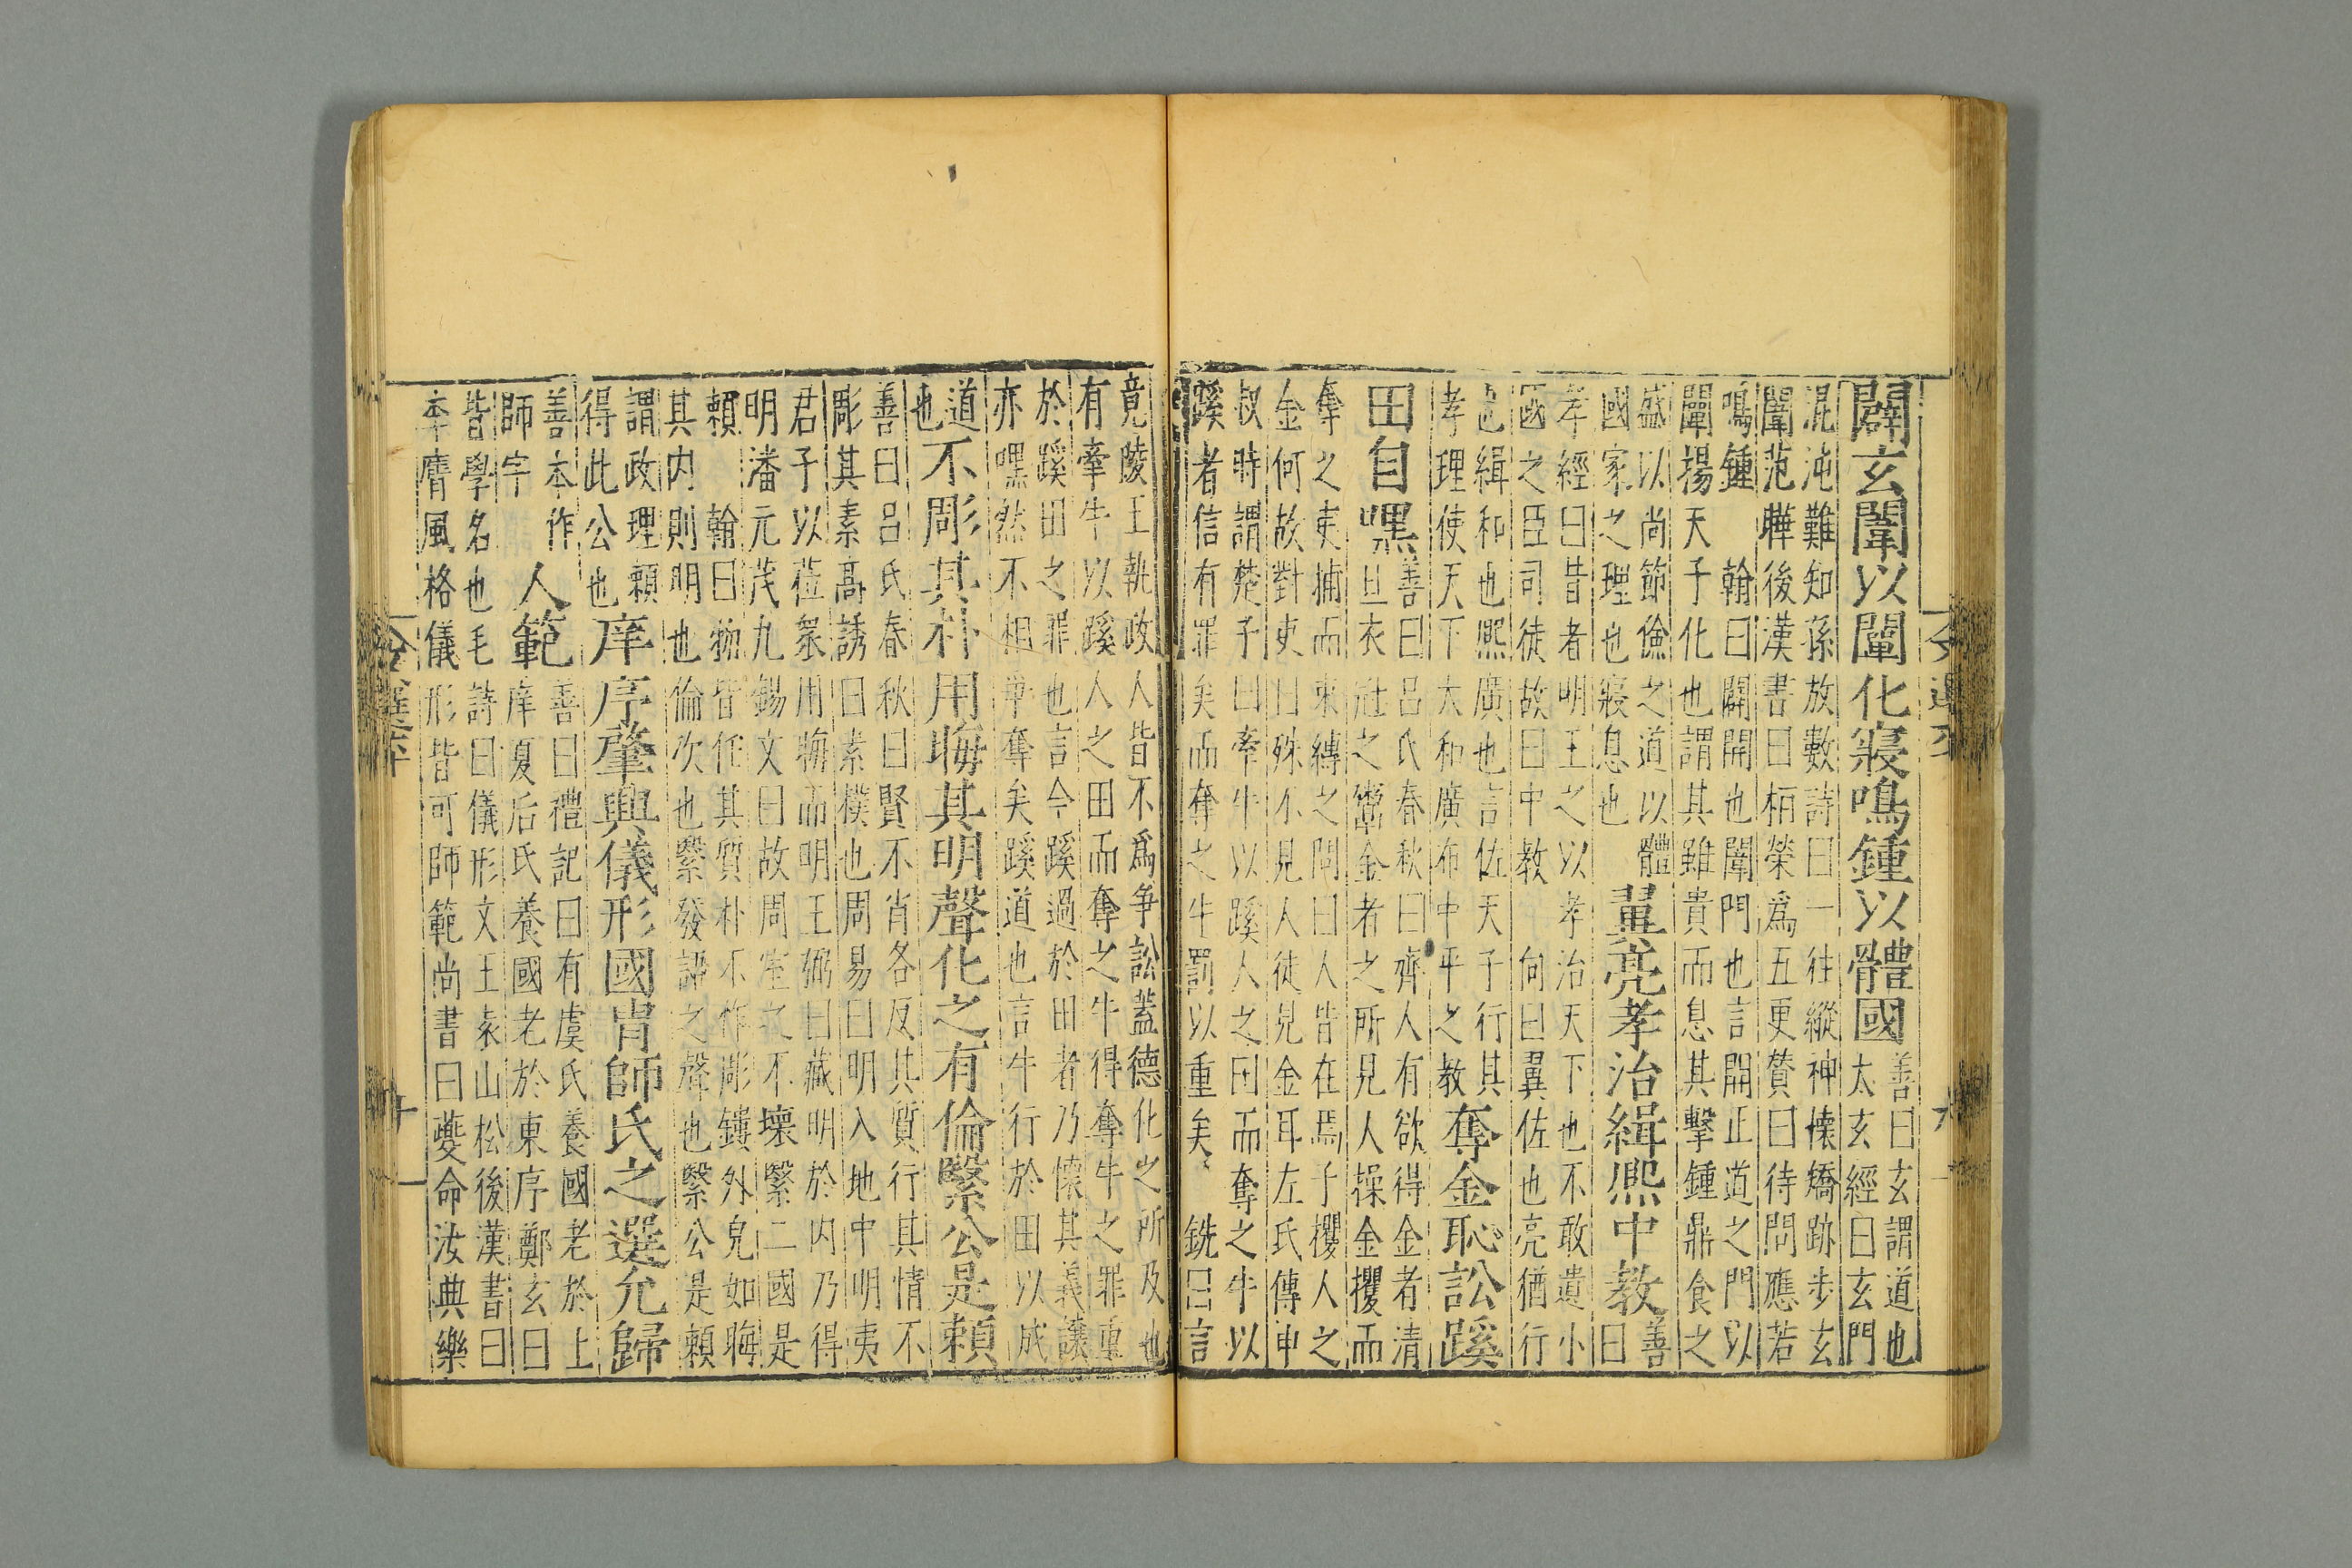 闢玄闈以闡化寢鳴鍾以體國善曰玄謂道也
太玄經曰玄門
混沌難知孫放數詩曰一往縱神懷矯跡步玄
闈范曄後漢書曰桓榮爲五更贊曰待問應若
鳴鍾 翰曰闢開也闈門也言開正道之門以
闡揚天子化也謂其雖貴而息其擊鍾鼎食之
盛以尚節儉之道以體
國家之理也寢息也
翼亮孝治緝熙中教善
曰
孝經曰昔者明王之以孝治天下也不敢遺小
國之臣司徒故曰中教 向曰翼佐也亮猶行
也緝和也熙廣也言佐天子行其
孝理使天下大和廣布中平之教
奪金恥訟蹊
田自嘿善曰呂氏春秋曰齊人有欲得金者清
旦衣冠之鬻金者之所見人操金攫而
奪之吏捕而束縛之問曰人皆在焉子攫人之
金何故對吏曰殊不見人徒見金耳左氏傳申
叔時謂楚子曰牽牛以蹊人之田而奪之牛以
蹊者信有罪矣而奪之牛罰以重矣 銑曰言
竟陵王執政人皆不爲爭訟蓋德化之所及也
有牽牛以蹊人之田而奪之牛得奪牛之罪重
於蹊田之罪也言今蹊過於田者乃懷其義讓
亦嘿然不相爭奪矣蹊道也言牛行於田以成
道
也
不彫其朴用晦其明聲化之有倫繄公是賴
善曰呂氏春秋曰賢不肖各反其質行其情不
彫其素高誘曰素樸也周易曰明入地中明夷
君子以莅衆用晦而明王弼曰藏明於内乃得
明潘元茂九錫文曰故周室之不壞繄二國是
賴 翰曰物皆任其質朴不作彫鏤外皃如晦
其内則明也倫次也繄發語之聲也繄公是賴
謂政理賴
得此公也
庠序肇興儀形國胄師氏之選允歸
善本作
師字
人範善曰禮記曰有虞氏養國老於上
庠夏后氏養國老於東序鄭玄曰
皆學名也毛詩曰儀形文王袁山松後漢書曰
李膺風格儀形皆可師範尚書曰夔命汝典樂